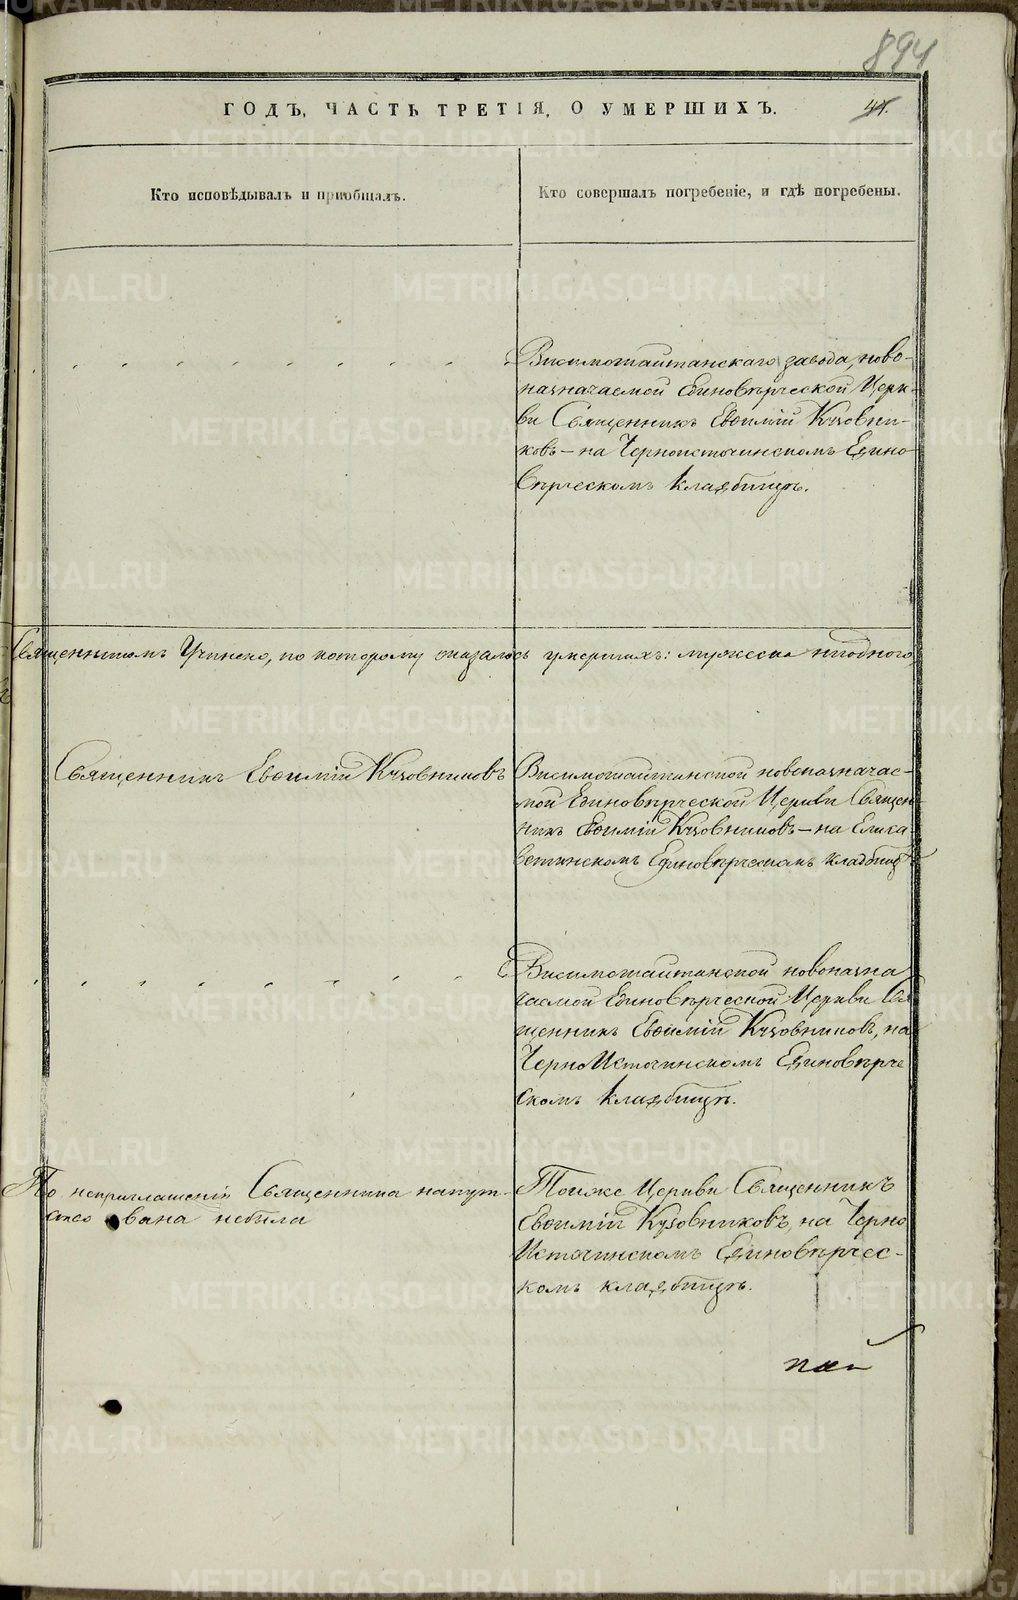 894
ГОДЪ, ЧАСТЬ ТРЕТІЯ, О УМЕРШИХЪ.
41.
Кто исповѣдывалъ и приобщалъ.
Кто совершалъ погребеніе, и гдѣ погребены.
Висимошайтанскаго завода, ново-
назначаемой Единовѣрческой Церк-
ви Священникъ Евѳимій Кузовни-
ковъ – на Черноисточинскомъ Едино
вѣрческомъ кладбищѣ.
Священникомъ Учинено, по которому оказалось умершихъ: мужеска ниодного
Священникъ Евѳимій Кузовниковъ
Висимошайтанской новоназначае-
мой Единовѣрческой Церкви Священ-
никъ Евѳимій Кузовниковъ – на Елиса-
ветинскомъ Единовѣрческомъ кладбищѣ
Висимошайтанской новоназна
чаемой Единовѣрческой Церкви Свя
щенникъ Евѳимій Кузовниковъ, на
ЧерноИсточинскомъ Единовѣрче
скомъ кладбищѣ.
По неприглашенію Священника напут-
ствована небыла
Тоиже Церкви Священникъ
Евѳимій Кузовниковъ, на Черно
Источинскомъ Единовѣрчес-
комъ кладбищѣ.
METRIKI.GASO-URAL.RU